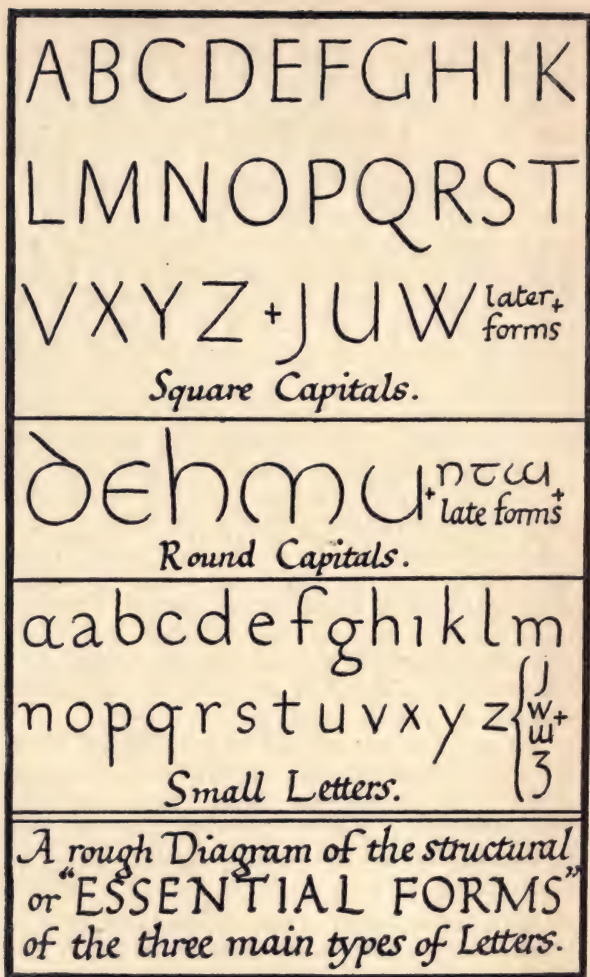 A B C D E F G H I K
L M N O P Q R S T
V X Y Z + J U W later +
forms
Square Capitals.
δ ϵ h m u + n τ ɯ +
late forms
Round Capitals.
ɑ a b c d e f g h ı k l m
n o p q r s t u v x y z { j
w +
ɯ
ʒ
Small Letters.
A rough Diagram of the structural
or "ESSENTIAL FORMS"
of the three main types of Letters.